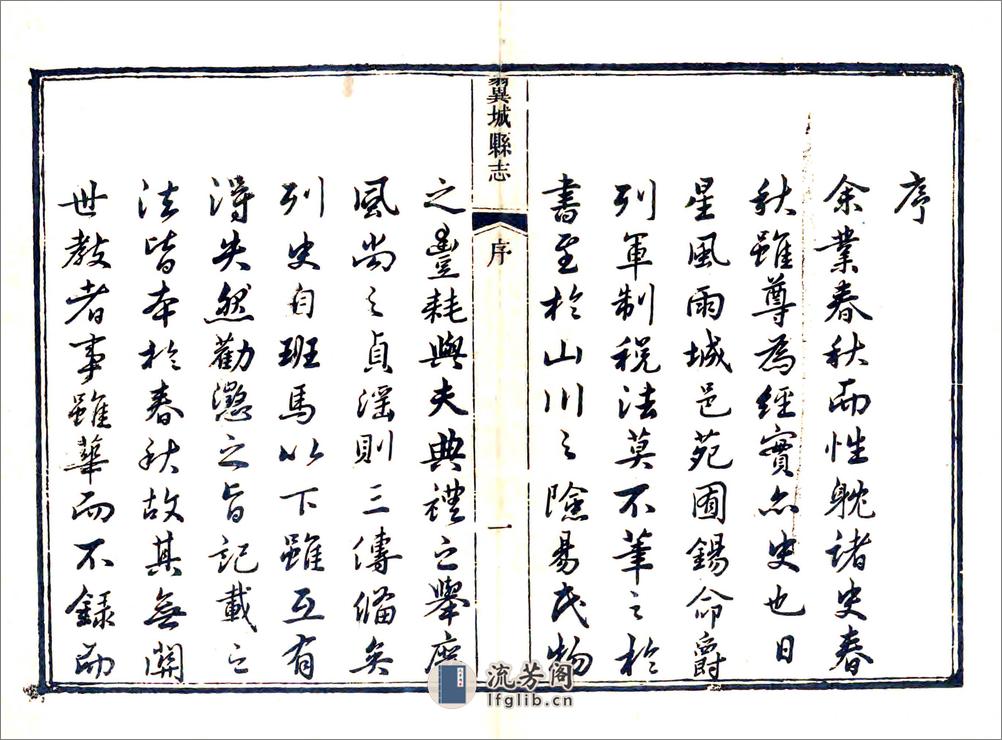 序
余業春秋而性躭諸史春
秋雖尊為經實亦史也日
星風雨城邑苑囿錫命爵
列軍制稅法莫不筆之於
書至於山川之險易民物
翼城縣志
序
一
之豐耗與夫典禮之舉廢
風尚之貞淫則三傳備矣
列史自班馬以下雖互有
得失然勸懲之旨記載之
法皆本於春秋故其無關
世教者事雖華而不錄而
流芳阁
lfglib.cn